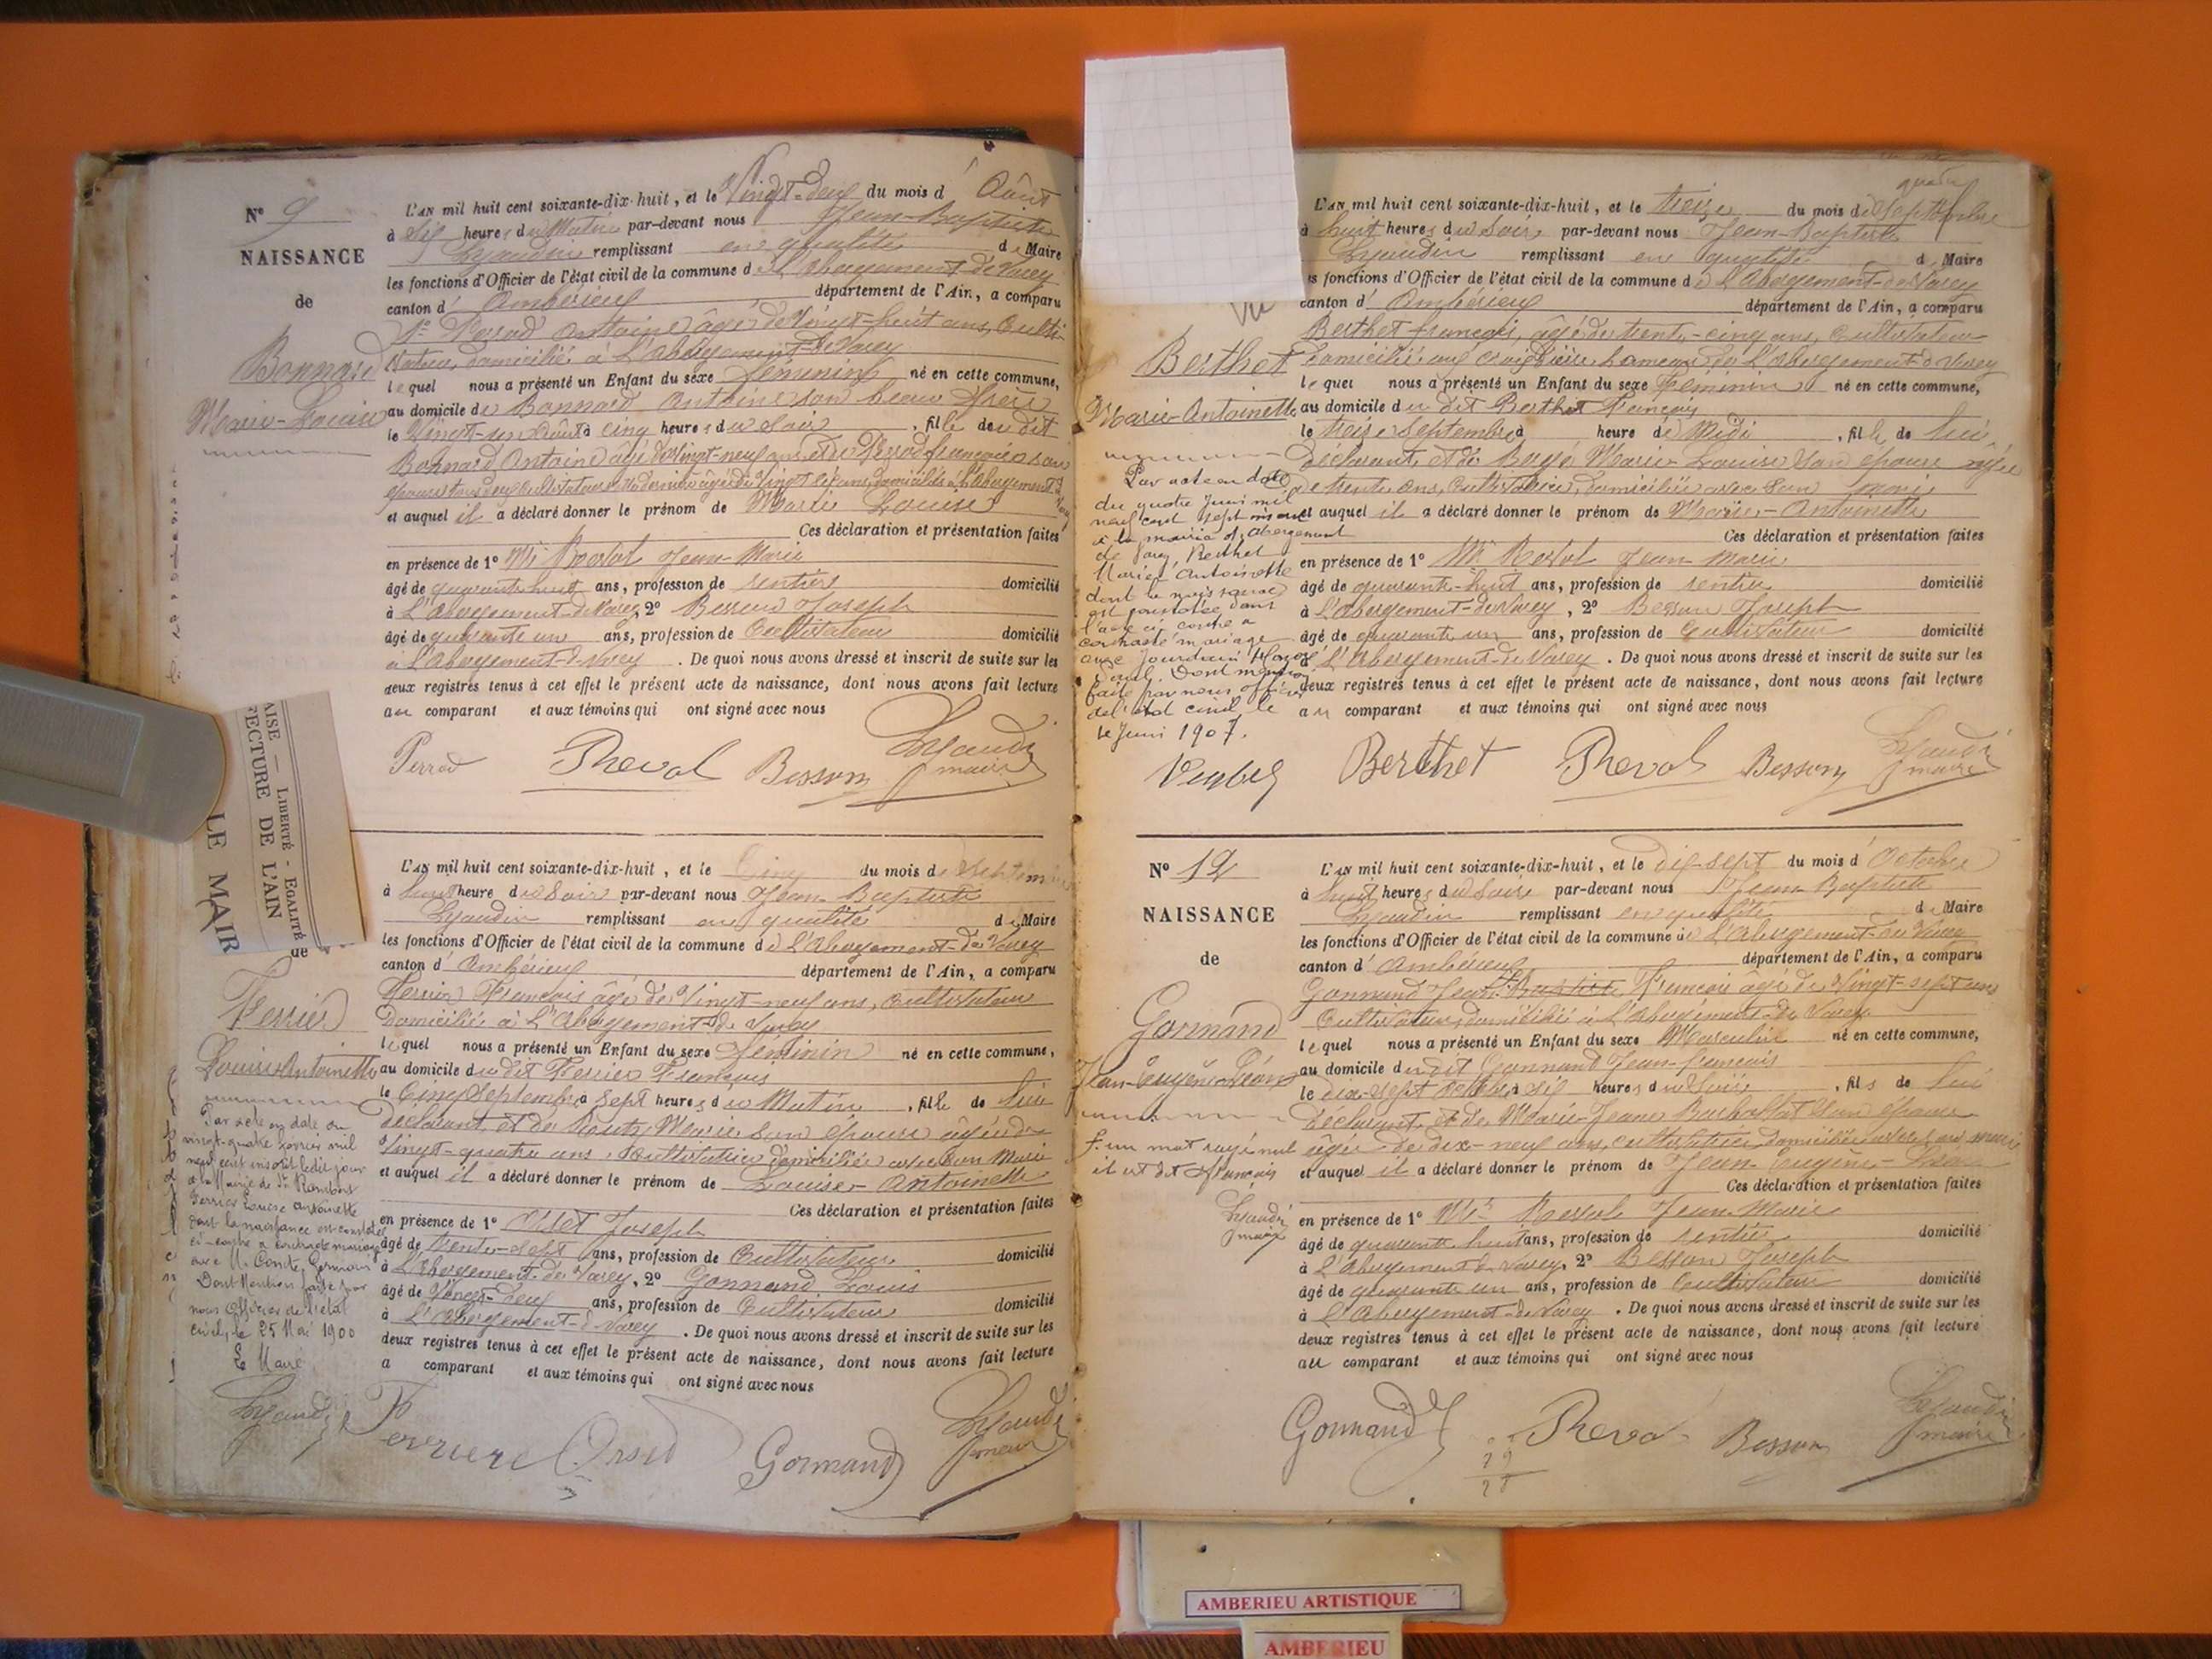 N° 9
NAISSANCE
de
Bonnard
Marie-Louise
L'AN mil huit cent soixante-dix-huit, et le Vingt-deux du mois d' Août
à Six heures du Matin par-devant nous Jean-Baptiste
remplissant en qualité de Maire
les fonctions d'Officier de l'état civil de la commune de L'abergement-de Varey
canton d' Ambérieux département de l'Ain, a comparu
antoine âgé de Vingt-huit ans, Culti-
vateur, domicilié à L'abergement-de Varey
lequel nous a présenté un Enfant du sexe féminin né en cette commune,
au domicile de Bonnard Antoine son beau frère
le Vingt-un Août à cinq heures du Soir, fille de dudit
Bonnard Antoine âgé de Vingt-neuf ans et de françoise son
épouse tous deux Cultivateurs domiciliés à L'abergement-de
et auquel il a déclaré donner le prénom de Marie Louise
Ces déclaration et présentation faites
en présence de 1° Mr Jean-Marie
âgé de quarante-huit ans, profession de rentier domicilié
à L'abergement-de Varey, 2° Besson Joseph
âgé de quarante un ans, profession de Cultivateur domicilié
à L'abergement-de Varey. De quoi nous avons dressé et inscrit de suite sur les
deux registres tenus à cet effet le présent acte de naissance, dont nous avons fait lecture
au comparant et aux témoins qui ont signé avec nous
Besson
maire
AISE — LIBERTÉ - EGALITÉ
FECTURE DE L'AIN
LE MAIR
de
Ferrier
Louise Antoinette
L'AN mil huit cent soixante-dix-huit, et le Cinq du mois de Septembre
à huit heure du Soir par-devant nous Jean-Baptiste
remplissant en qualité de Maire
les fonctions d'Officier de l'état civil de la commune de L'abergement-de Varey
canton d' Ambérieux département de l'Ain, a comparu
Ferrier François âgé de Vingt-neuf ans, Cultivateur
domicilié à L'abergement-de Varey
lequel nous a présenté un Enfant du sexe féminin né en cette commune,
au domicile dudit Ferrier François
le Cinq Septembre à sept heures du Matin, fille de lui
déclarant et de Marie son épouse âgée de
Vingt-quatre ans, Cultivatrice domiciliée avec son Mari
et auquel il a déclaré donner le prénom de Louise-Antoinette
Ces déclaration et présentation faites
en présence de 1° Orset Joseph
âgé de trente-sept ans, profession de Cultivateur domicilié
à L'abergement-de Varey, 2° Gonnand Louis
âgé de Vingt-deux ans, profession de Cultivateur domicilié
à L'abergement-de Varey. De quoi nous avons dressé et inscrit de suite sur les
deux registres tenus à cet effet le présent acte de naissance, dont nous avons fait lecture
a comparant et aux témoins qui ont signé avec nous
Par acte en date du
vingt-quatre février mil
neuf cent inscrit ledit jour
à la Mairie de St Rambert
Ferrier Louise Antoinette
dont la naissance est constatée
ci-contre a contracté mariage
avec M. Conte Germain
Dont Mention faite par
nous Officier de l'état
civil, le 25 Mai 1900
Le Maire
Orset Gonnand
maire
quatre
L'AN mil huit cent soixante-dix-huit, et le treize du mois de Septembre
à huit heures du Soir par-devant nous Jean-Baptiste
remplissant en qualité d Maire
es fonctions d'Officier de l'état civil de la commune de L'abergement-de Varey
canton d' Ambérieux département de l'Ain, a comparu
Berthet françois, âgé de trente-cinq ans, Cultivateur
Berthet
Marie-Antoinette
lequel nous a présenté un Enfant du sexe féminin né en cette commune,
au domicile du dit Berthet François
le treize Septembre à heure de Midi, fille de lui
déclarant, et de Marie-Louise son épouse âgée
de trente ans, Cultivatrice, domiciliée avec son mari
et auquel il a déclaré donner le prénom de Marie-Antoinette
Ces déclaration et présentation faites
en présence de 1° Mr Jean Marie
âgé de quarante-huit ans, profession de rentier domicilié
à L'abergement-de Varey, 2° Besson Joseph
âgé de quarante un ans, profession de Cultivateur domicilié
à L'abergement-de Varey. De quoi nous avons dressé et inscrit de suite sur les
deux registres tenus à cet effet le présent acte de naissance, dont nous avons fait lecture
au comparant et aux témoins qui ont signé avec nous
Par acte en date
du quatre Juin mil
neuf cent sept inscrit
à la mairie d'Abergement
de Varey Berthet
Marie Antoinette
dont la naissance
est constatée dans
l'acte ci contre a
contracté mariage
avec Jourdain
Dont mention
faite par nous officier
de l'état civil le
Juin 1907.
Berthet Besson
maire
N° 12
NAISSANCE
de
Gonnand
Jean-Eugène-Léon
L'AN mil huit cent soixante-dix-huit, et le dix-sept du mois d' Octobre
à huit heures du Soir par-devant nous Jean-Baptiste
remplissant en qualité de Maire
les fonctions d'Officier de l'état civil de la commune de L'abergement-de Varey
canton d' Ambérieux département de l'Ain, a comparu
Gonnand Jean-Baptiste François âgé de Vingt-sept ans
Cultivateur, domicilié à L'abergement-de Varey
lequel nous a présenté un Enfant du sexe Masculin né en cette commune,
au domicile dudit Gonnand Jean-françois
le dix-sept Octobre à six heures du Soir, fils de lui
déclarant et de Marie-Jeanne son épouse
âgée de dix-neuf ans, cultivatrice domiciliée avec son mari
et auquel il a déclaré donner le prénom de Jean-Eugène-Léon
Ces déclaration et présentation faites
en présence de 1° Mr Jean-Marie
âgé de quarante huit ans, profession de rentier domicilié
à L'abergement-de Varey, 2° Besson Joseph
âgé de quarante un ans, profession de Cultivateur domicilié
à L'abergement-de Varey. De quoi nous avons dressé et inscrit de suite sur les
deux registres tenus à cet effet le présent acte de naissance, dont nous avons fait lecture
au comparant et aux témoins qui ont signé avec nous
un mot rayé nul
il est dit françois
maire
Gonnand Besson
maire
AMBERIEU ARTISTIQUE
AMBERIEU